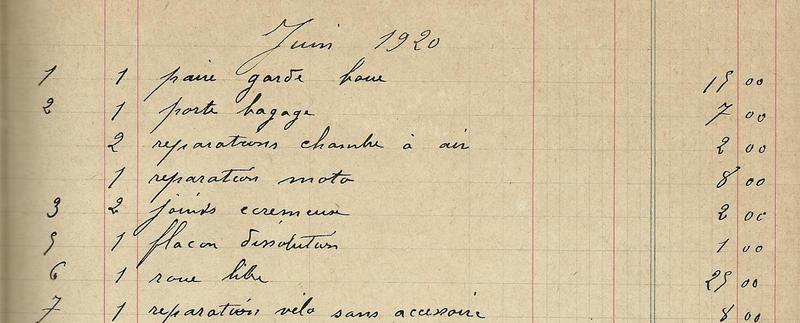 Juin 1920
1 1 paire garde boue 15 00
2 1 porte bagage 7 00
2 reparations chambre à air 2 00
1 reparation moto 8 00
3 2 joints ecremeuse 2 00
5 1 flacon dissolution 1 00
6 1 roue libre 25 00
7 1 reparation velo sans accessoire 8 00